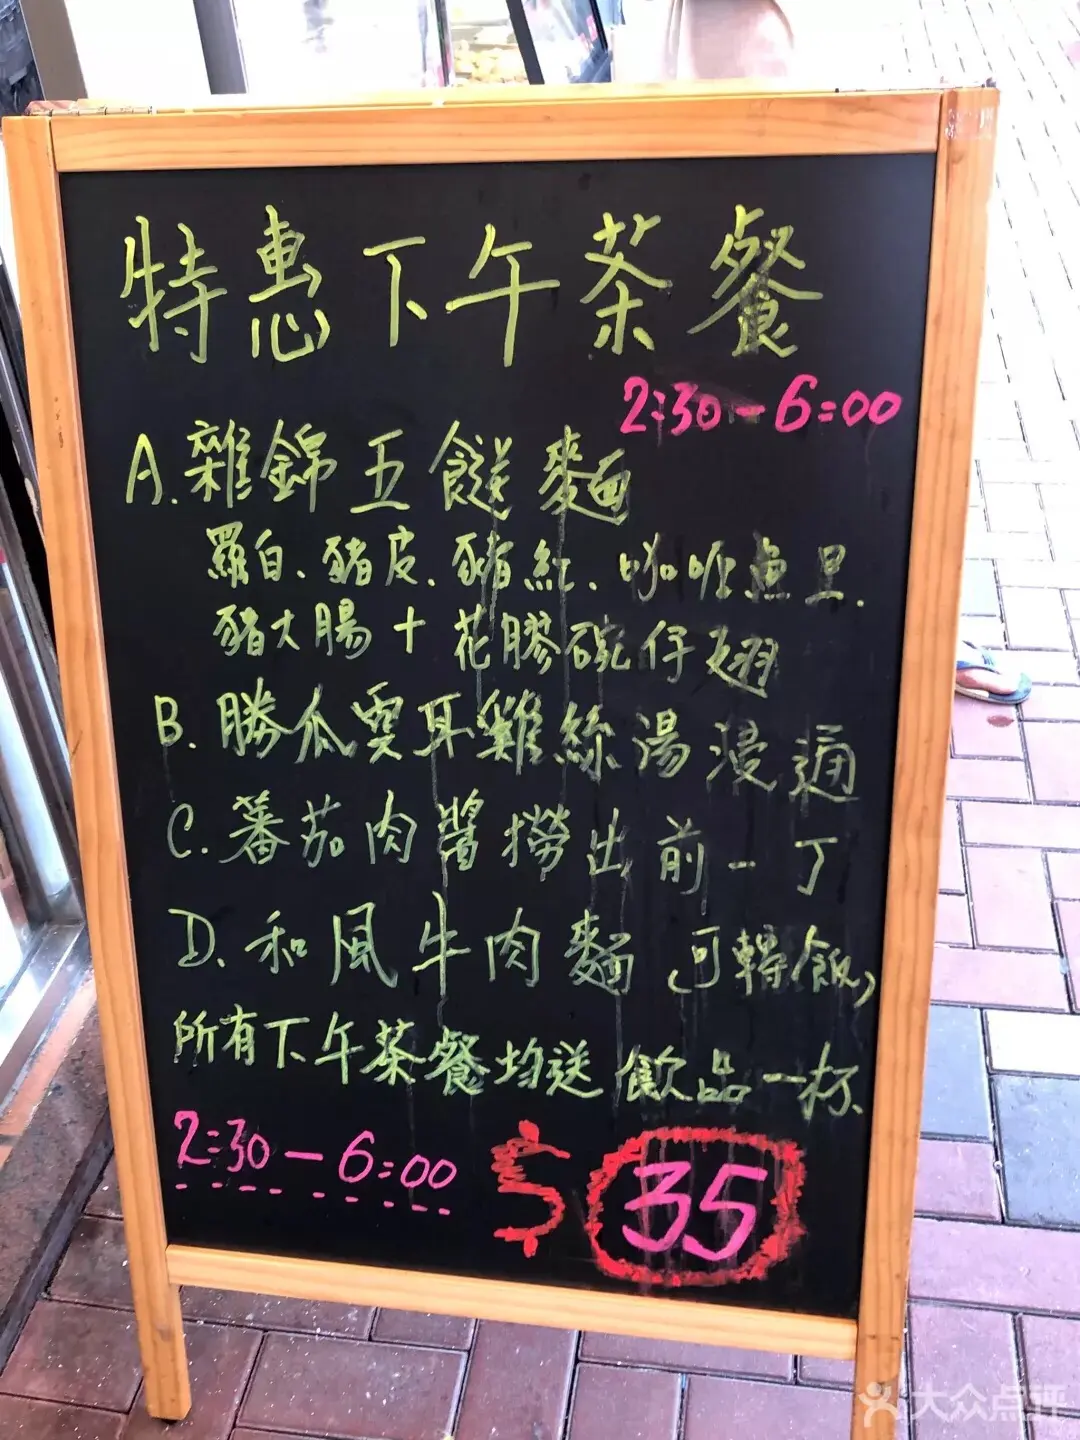 特惠下午茶餐
2:30-6:00
A.雜錦五餸麵
羅白、豬皮、豬紅、咖喱魚旦、
豬大腸+花膠碗仔翅
B.勝瓜雲耳雞絲湯浸通
C.蕃茄肉醬撈出前一丁
D.和風牛肉麵(可轉飯)
所有下午茶餐均送飲品一杯
2:30-6:00 $35
大众点评